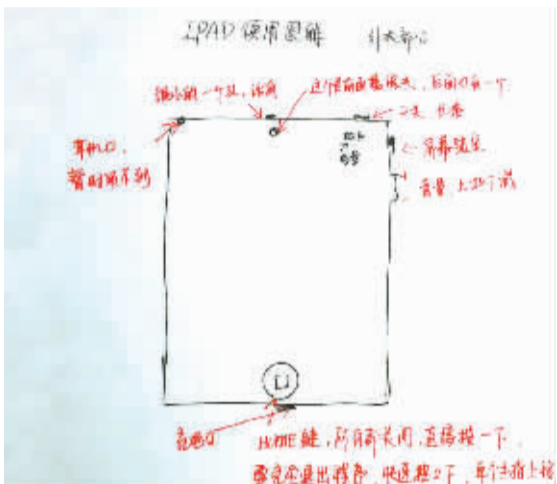 IPAD使用图解 外大部分
很小的一个孔，话筒 这个是前面摄像头，后面也有一个
开关，长按
耳机口，
暂时用不到
屏幕锁定
音量，上加下减
充电口 HOME键，所有都关闭，直接按一下，
要完全退出程序，快速按2下，单个手指上移